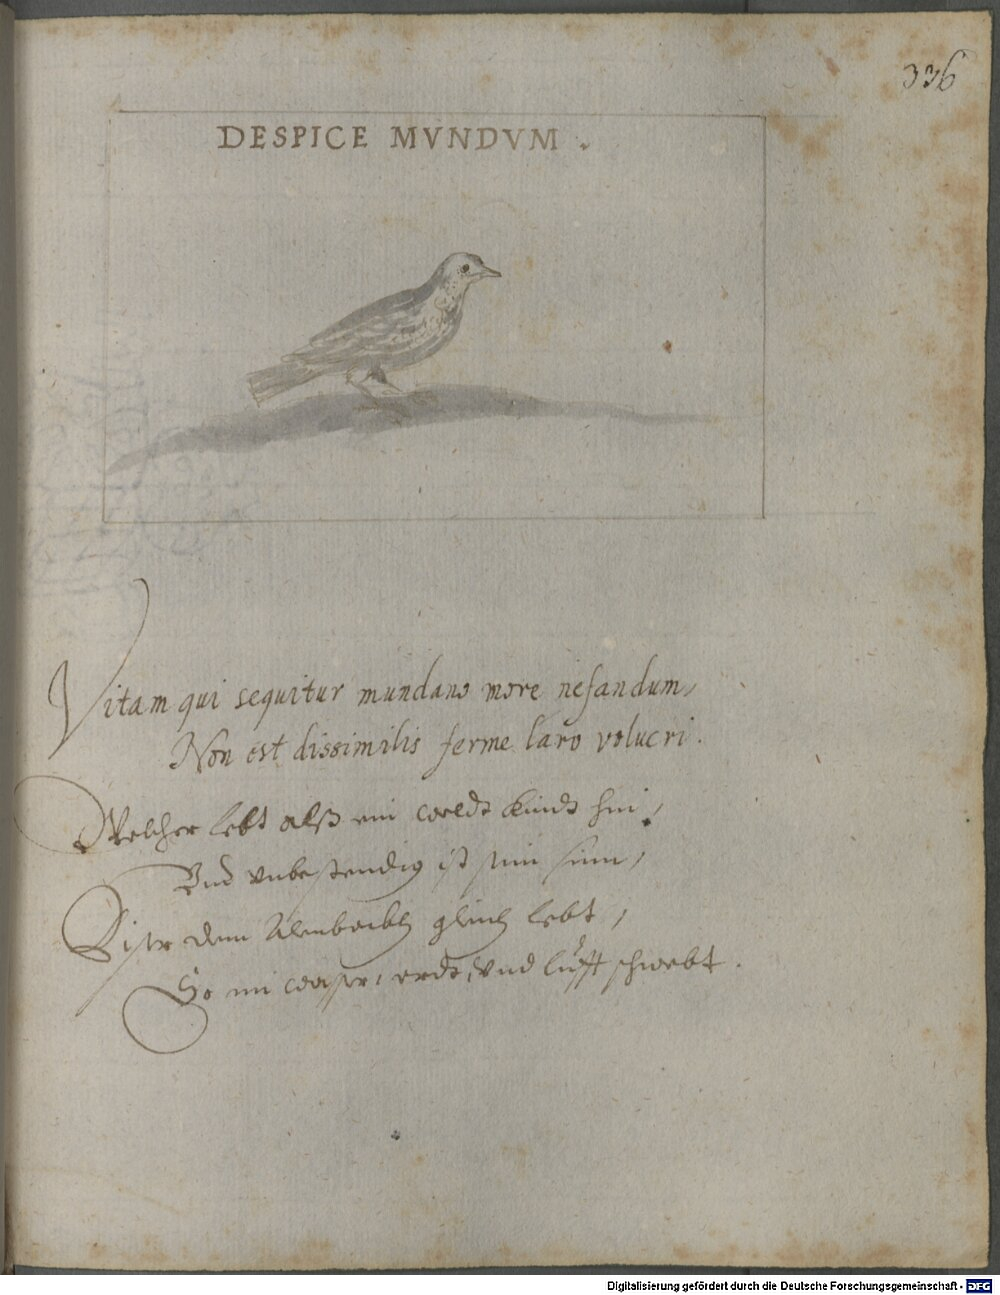 336
DESPICE MVNDVM.
Vitam qui sequitur mundano more nefandum,
Non est dissimilis ferme laro volucri.
Welcher lebt alß ein weldt kindt hin,
Vnd vnbestendig ist sein sinn,
Diser dem gleich lebt,
So im wasser, erdt, vnd lufft schwebt.
Digitalisierung gefördert durch die Deutsche Forschungsgemeinschaft - DFG